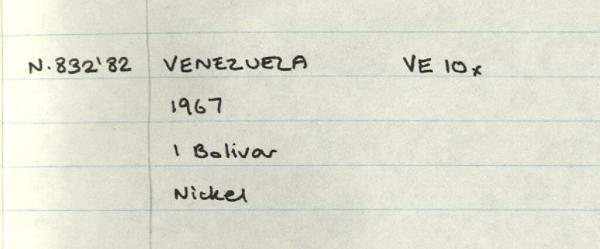 N.832'82 VENEZUELA VE 10x
1967
1 Bolivar
Nickel